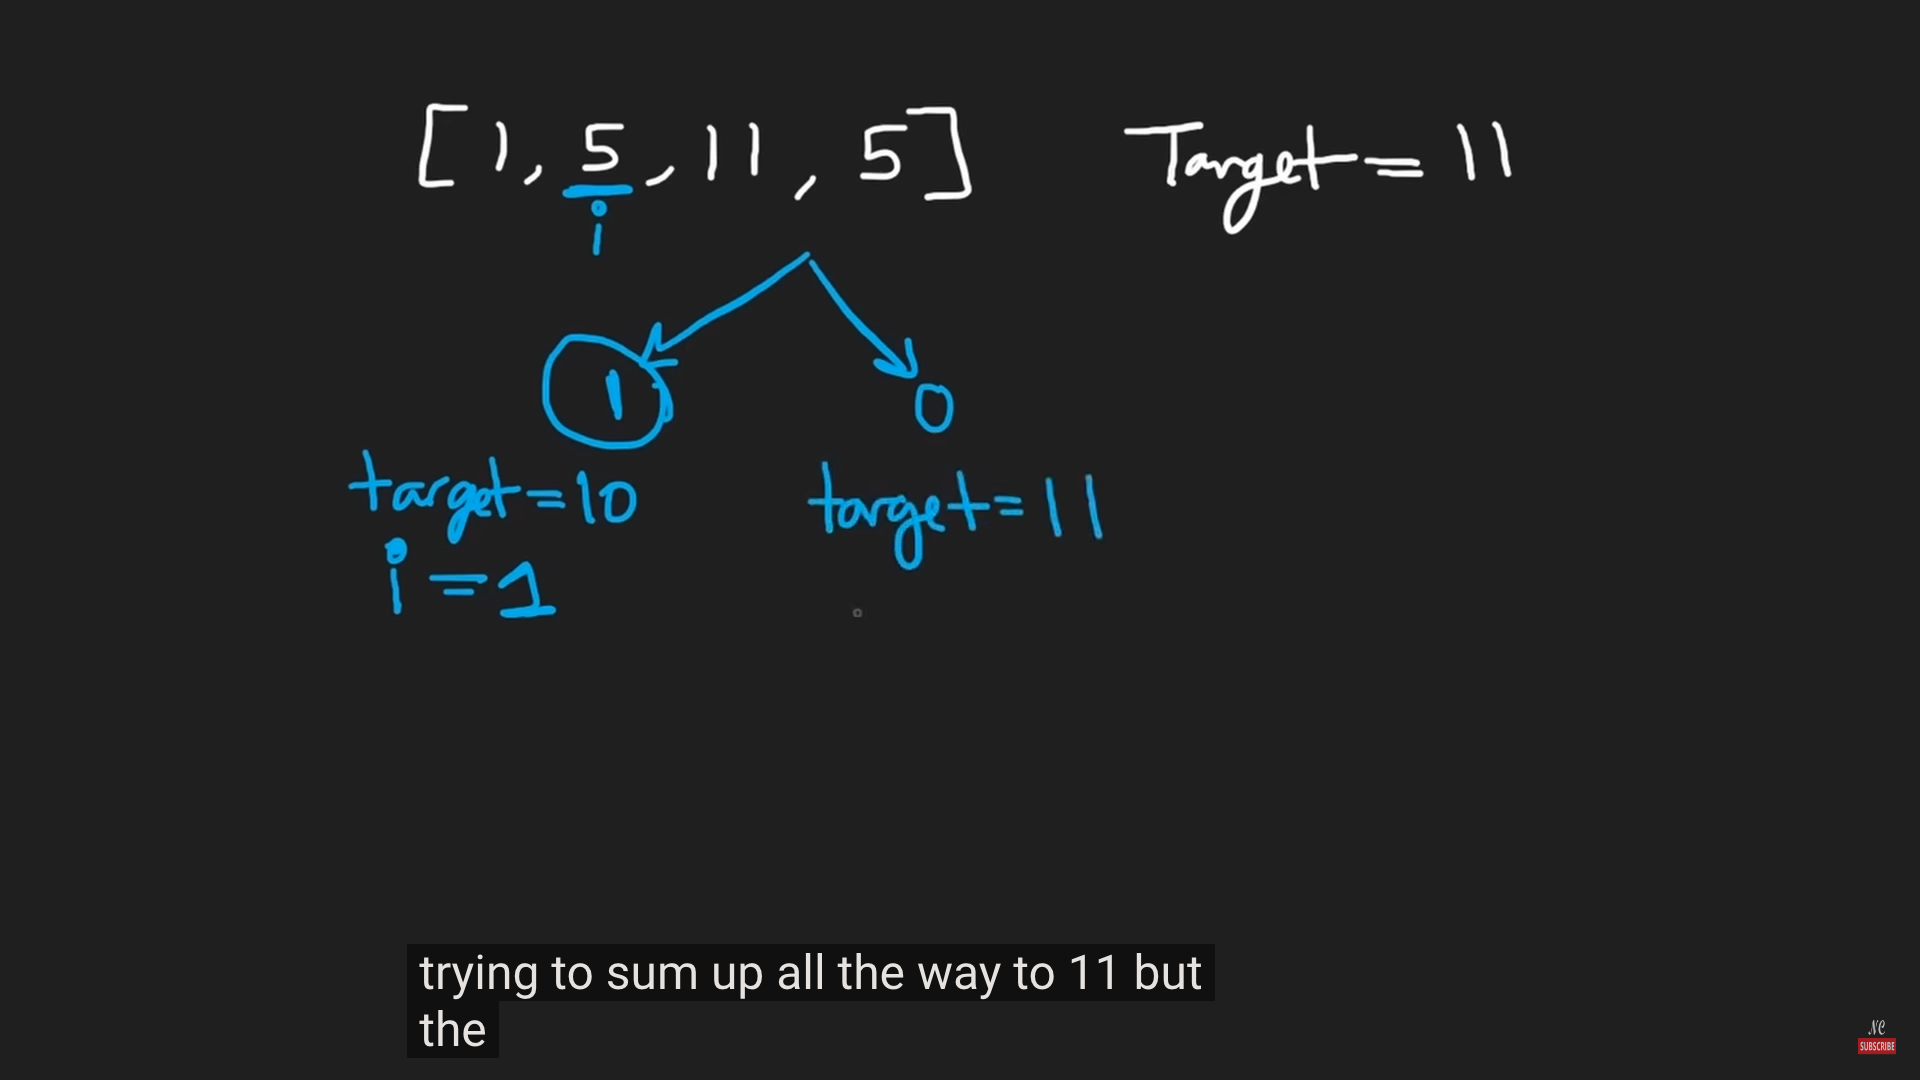 [1, 5, 11, 5] Target = 11
i
1 0
target = 10 target = 11
i = 1
trying to sum up all the way to 11 but
the
NC
SUBSCRIBE